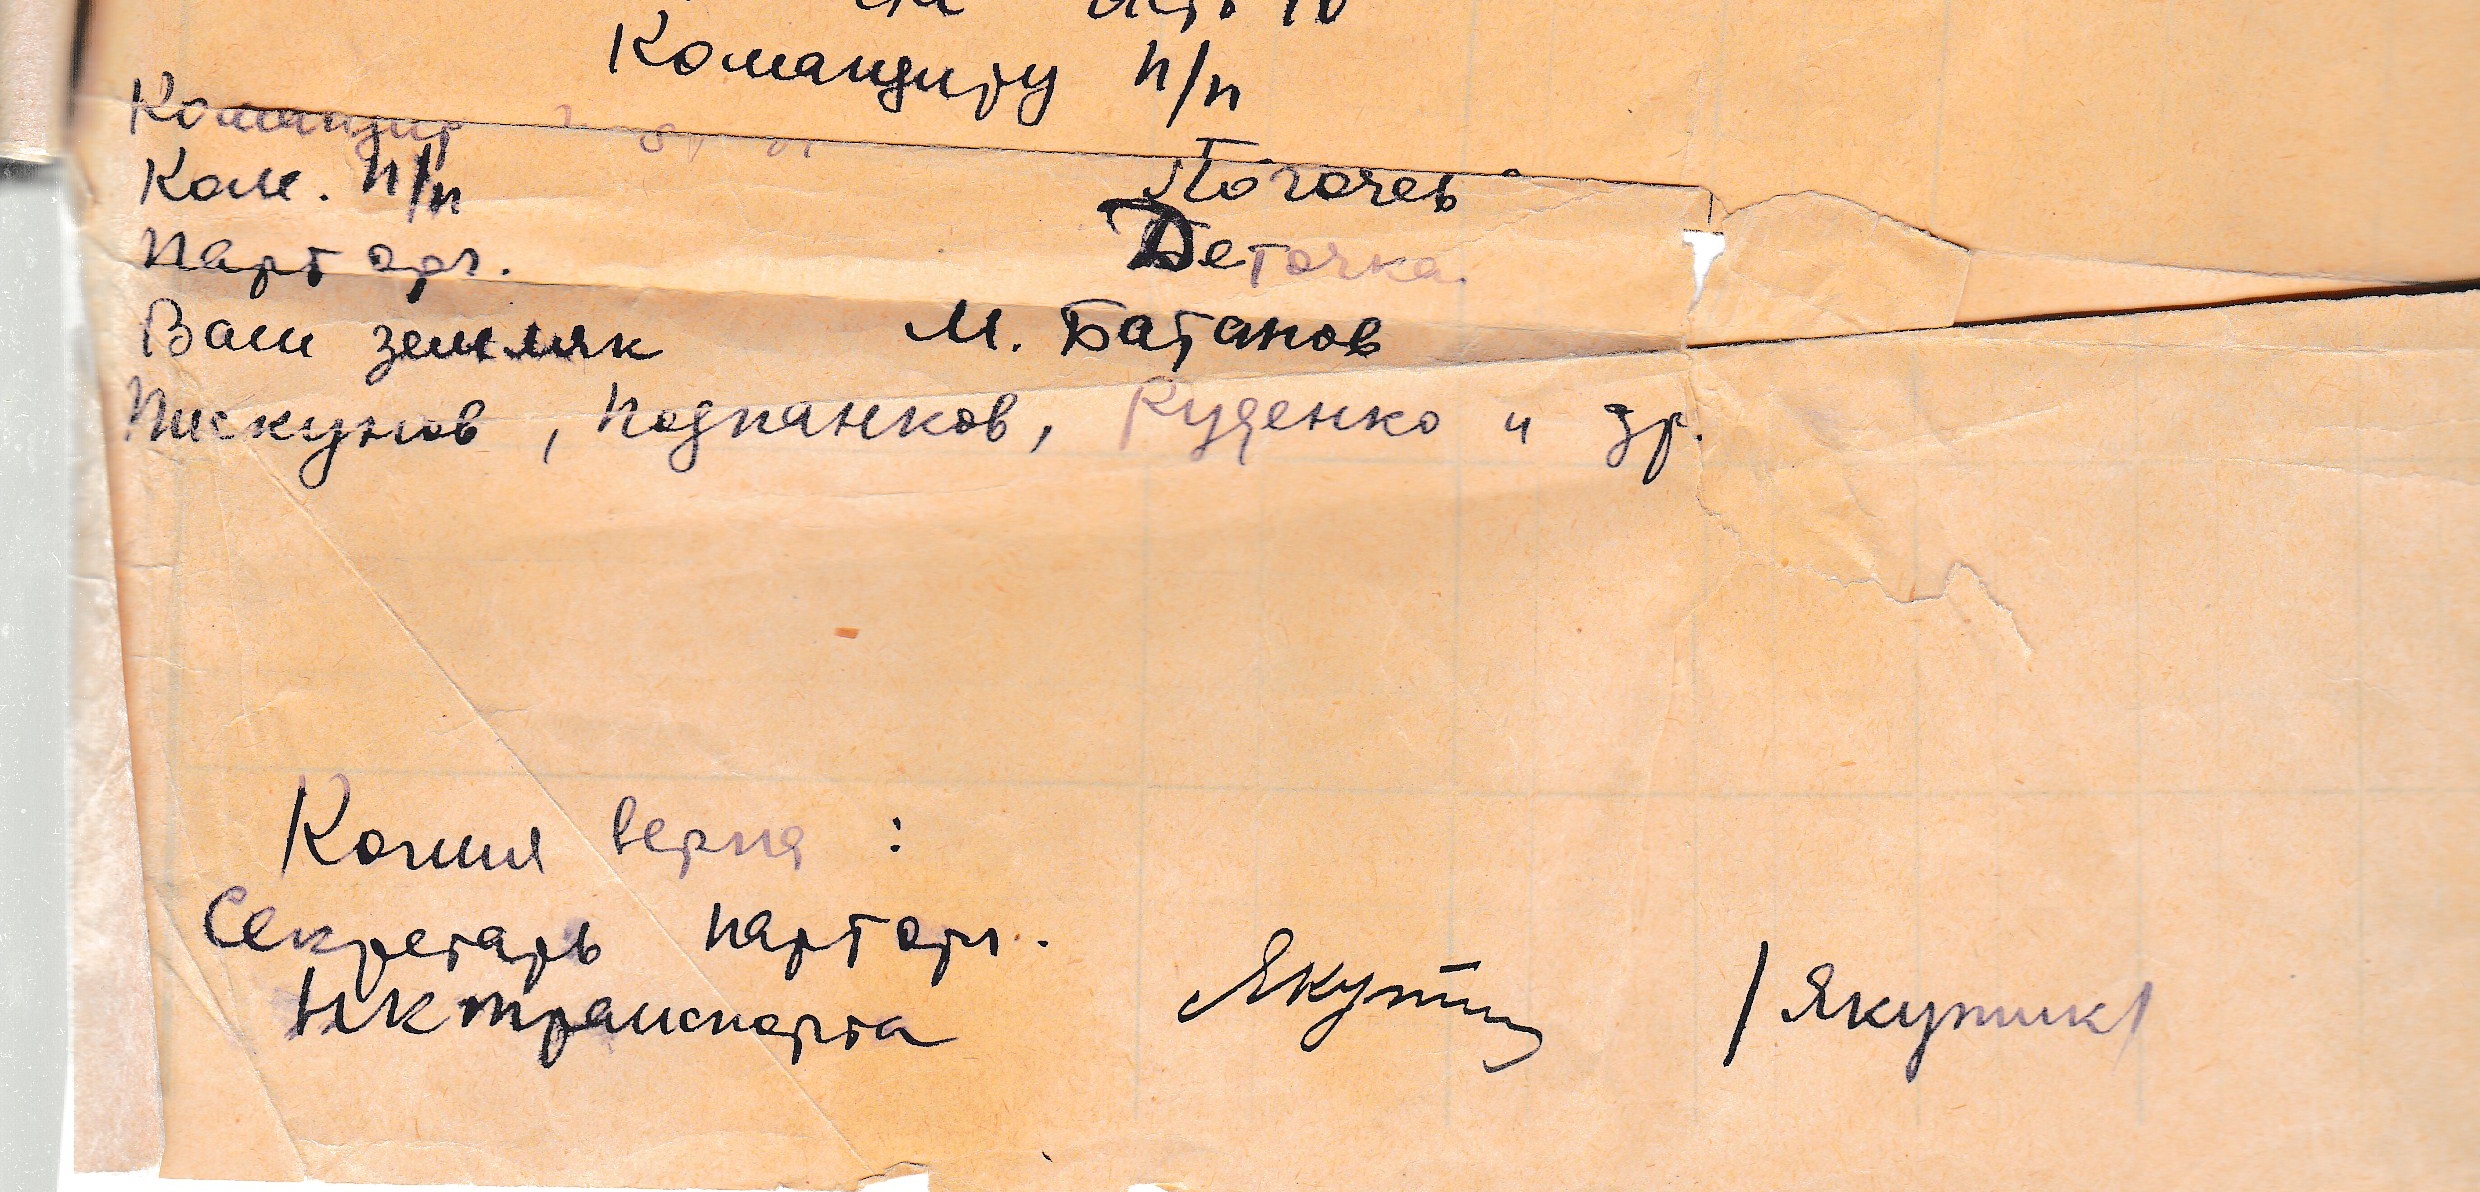 Командиру п/п
Командир
Ком. п/п Логочев
Парт орг. Деточка.
Ваш земляк М. Батанов
Пискунов, Подпанков, Руденко и др.
Копия верна :
Секретарь парторг.
НК транспорта Якутик /Якутик/